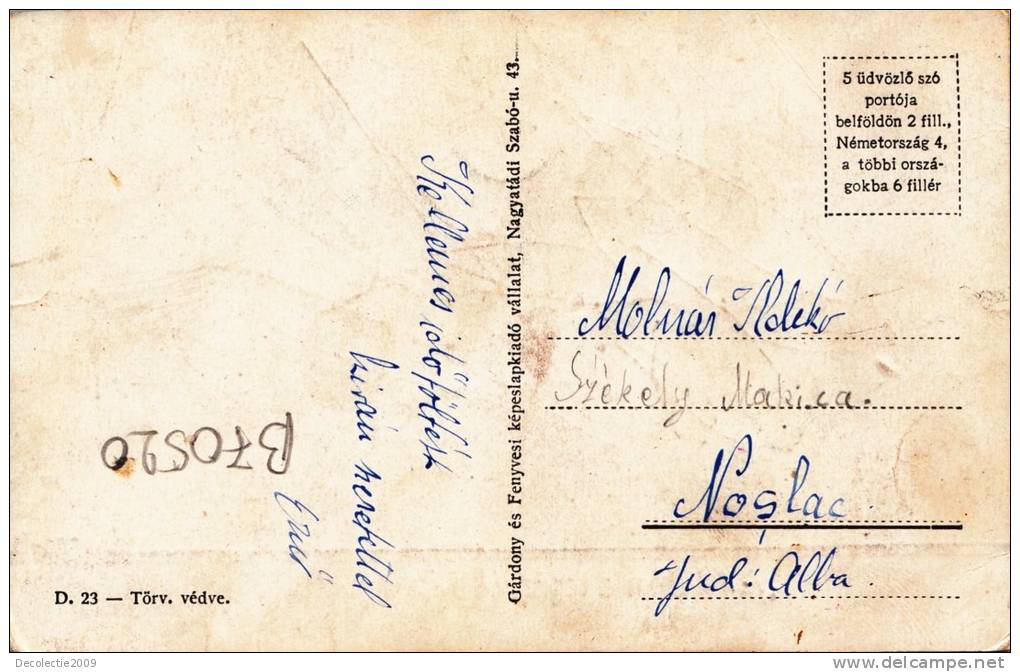 5 üdvözlő szó
portója
belföldön 2 fill.,
Németország 4,
a többi orszá-
gokba 6 fillér
Gárdony és Fenyvesi képeslapkiadó vállalat, Nagyatádi Szabó-u. 43.
Kellemes időtöltést
kíván szeretettel
Molnár Ildikó
Székely Marica.
Noşlac
Jud: Alba.
B70520
D. 23 — Törv. védve.
Decolectie2009
www.delcampe.net